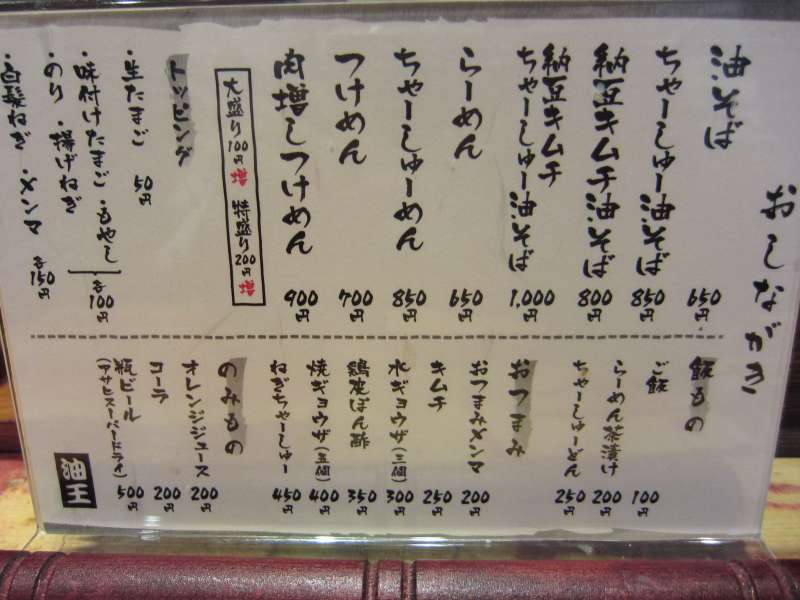 おしながき
油そば 650円
ちゃーしゅー油そば 850円
納豆キムチ油そば 800円
納豆キムチ
ちゃーしゅー油そば 1,000円
らーめん 650円
ちゃーしゅーめん 850円
つけめん 700円
肉増しつけめん 900円
大盛り100円増 特盛り200円増
トッピング
・生たまご 50円
・味付けたまご・もやし
・のり・揚げねぎ 各100円
・白髪ねぎ・メンマ 各150円
飯もの
ご飯 100円
らーめん茶漬け 200円
ちゃーしゅーどん 250円
おつまみ
おつまみメンマ 200円
キムチ 250円
水ギョウザ(三個) 300円
鶏皮ぽん酢 350円
焼ギョウザ(五個) 400円
ねぎちゃーしゅー 450円
のみもの
オレンジジュース 200円
コーラ 200円
瓶ビール 500円
(アサヒスーパードライ)
油王